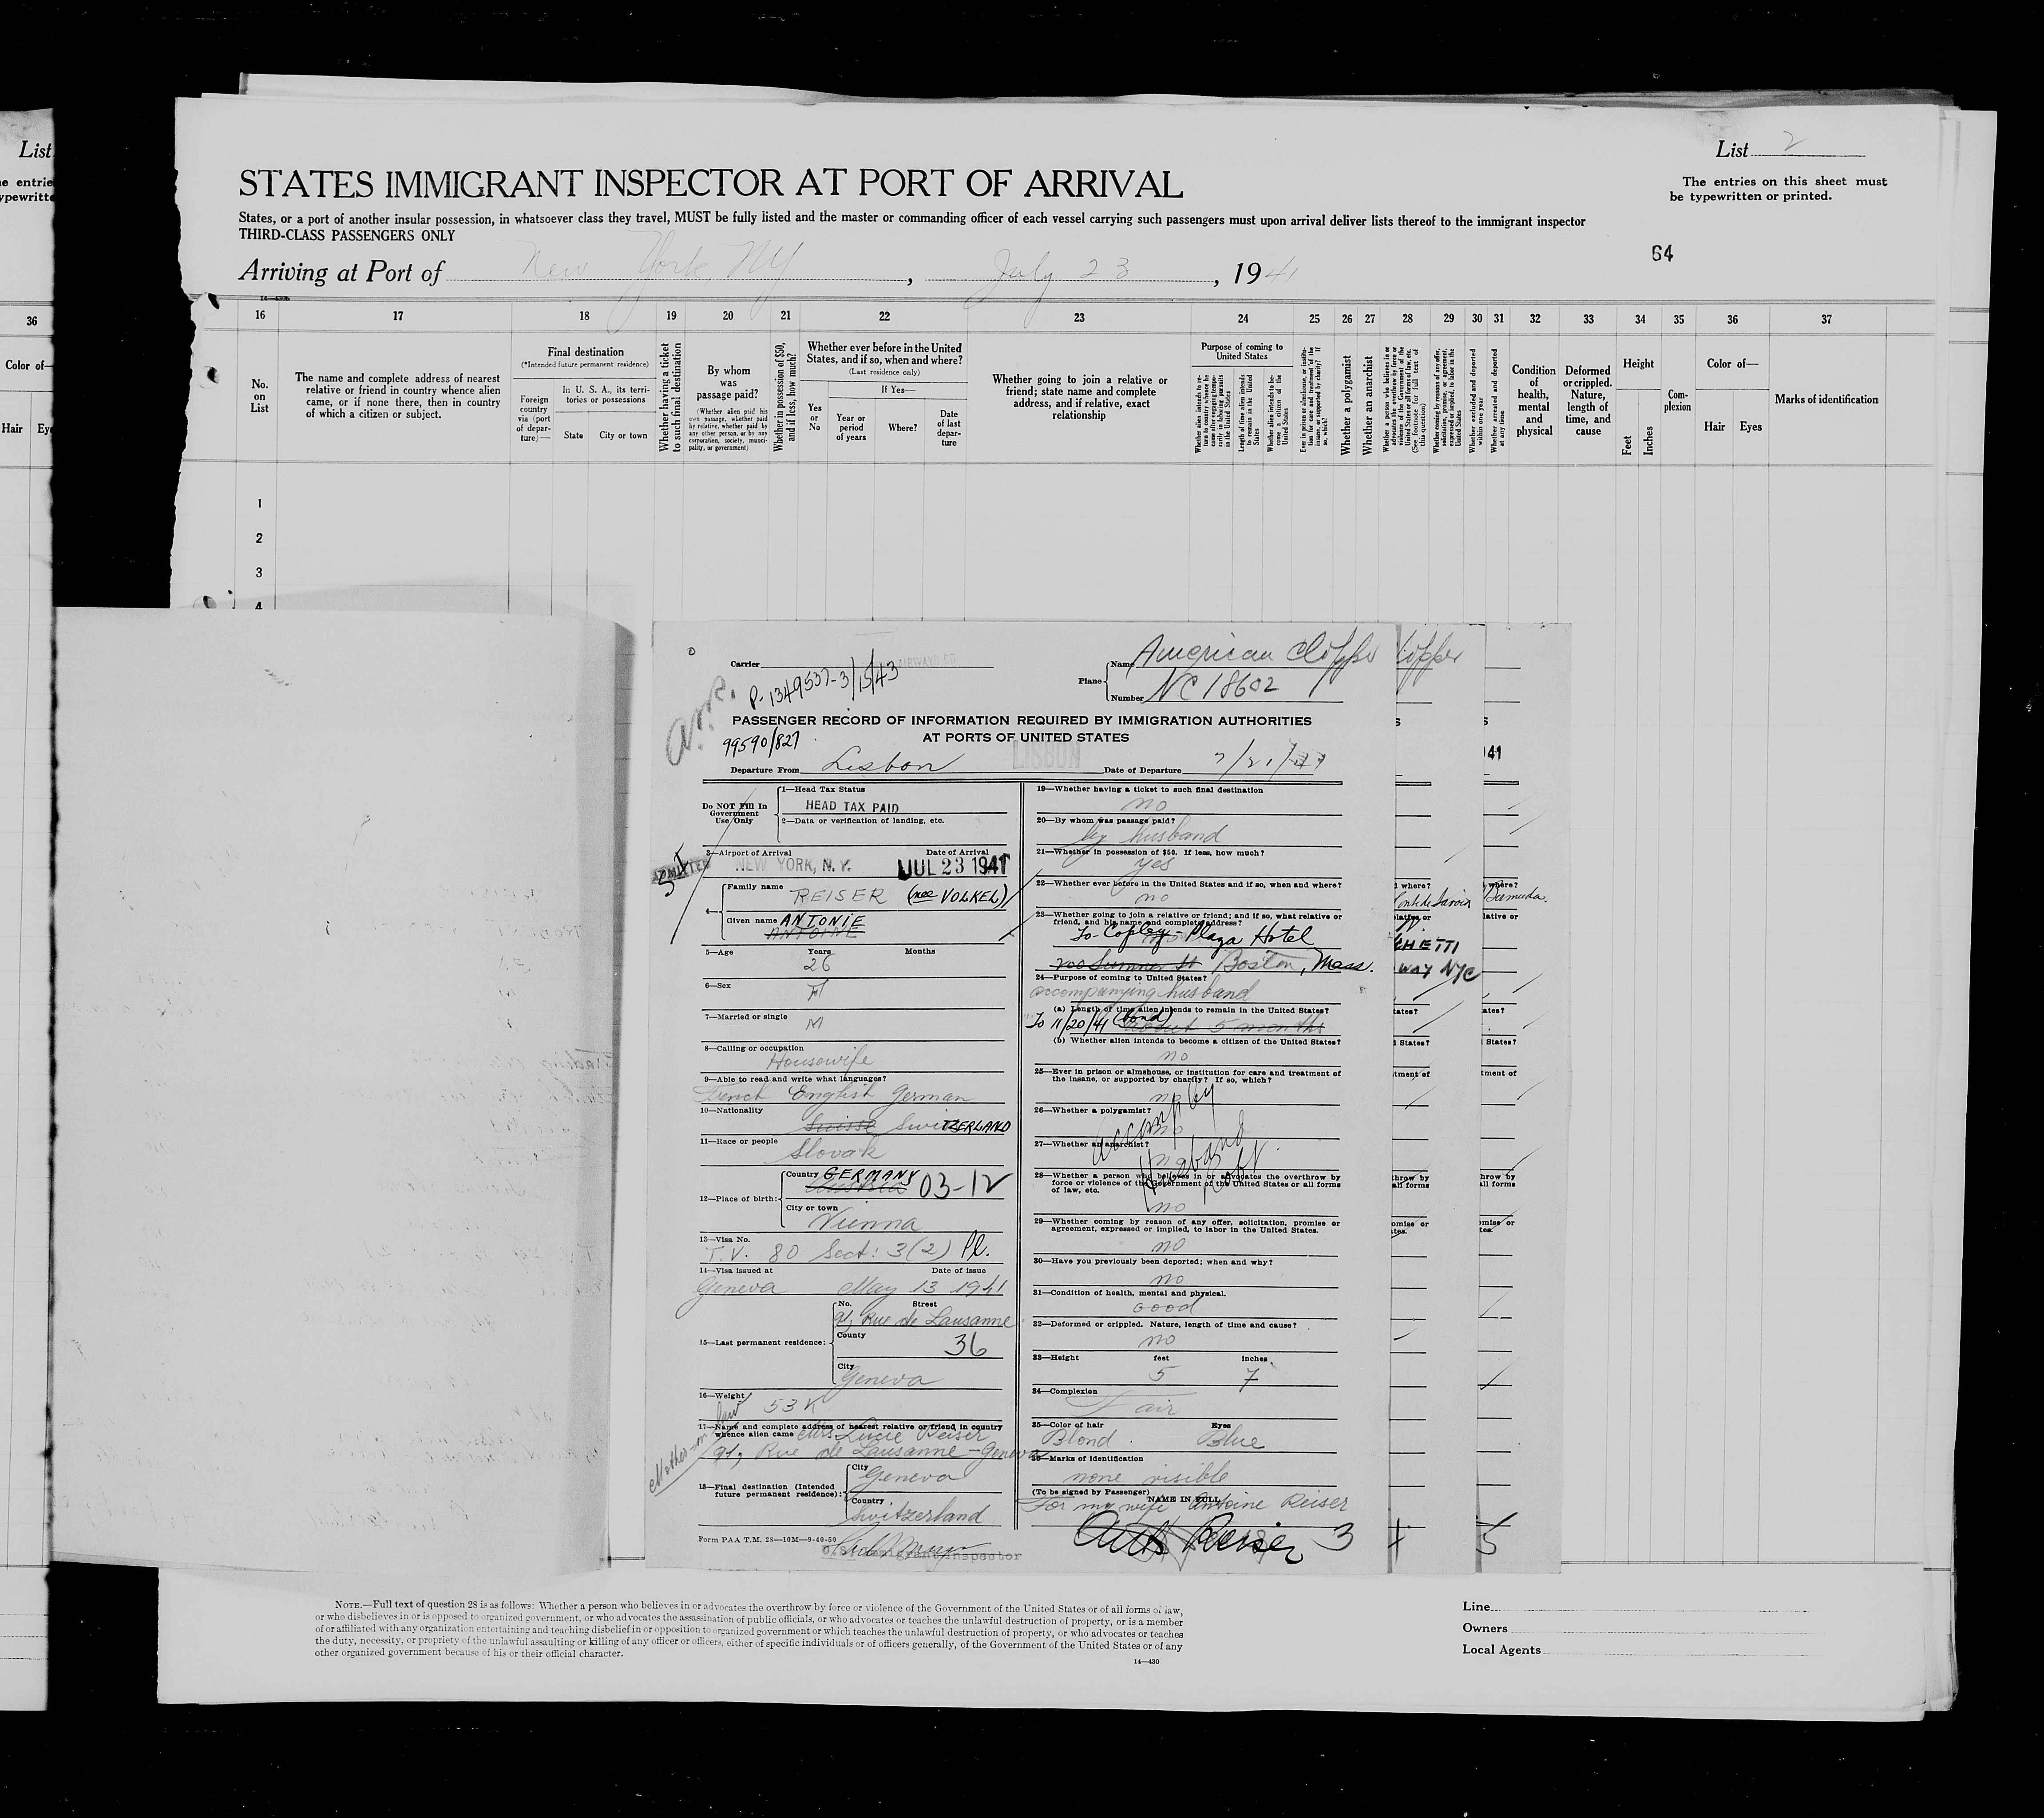 List
e entrie
ypewritte
36
Color of—
Hair Eye
List 2
The entries on this sheet must
be typewritten or printed.
STATES IMMIGRANT INSPECTOR AT PORT OF ARRIVAL
States, or a port of another insular possession, in whatsoever class they travel, MUST be fully listed and the master or commanding officer of each vessel carrying such passengers must upon arrival deliver lists thereof to the immigrant inspector
THIRD-CLASS PASSENGERS ONLY
64
Arriving at Port of New York, NY, July 23, 1941
16 17 18 19 20 21 22 23 24 25 26 27 28 29 30 31 32 33 34 35 36 37
No. on List
The name and complete address of nearest relative or friend in country whence alien came, or if none there, then in country of which a citizen or subject.
Final destination
(*Intended future permanent residence)
Foreign country via (port of departure)—
In U. S. A., its territories or possessions
State City or town
Whether having a ticket to such final destination
By whom was passage paid?
(Whether alien paid his own passage, whether paid by relative, whether paid by any other person, or by any corporation, society, municipality, or government)
Whether in possession of $50, and if less, how much?
Whether ever before in the United States, and if so, when and where?
(Last residence only)
Yes or No
If Yes—
Year or period of years
Where?
Date of last departure
Whether going to join a relative or friend; state name and complete address, and if relative, exact relationship
Purpose of coming to United States
Length of time alien intends to remain in the United States
Whether alien intends to become a citizen of the United States
Whether a polygamist
Whether an anarchist
Whether excluded and deported within one year
Whether arrested and deported at any time
Condition of health, mental and physical
Deformed or crippled. Nature, length of time, and cause
Height
Feet Inches
Complexion
Color of—
Hair Eyes
Marks of identification
1
2
3
4
Carrier AIRWAYS CO
P-1349537-3/15/43
Plane Name American Clipper
Number NC 18602
PASSENGER RECORD OF INFORMATION REQUIRED BY IMMIGRATION AUTHORITIES
AT PORTS OF UNITED STATES
99590/827
LISBON
Departure From Lisbon Date of Departure 7/21/41
Do NOT Fill In Government Use Only
1—Head Tax Status
HEAD TAX PAID
2—Data or verification of landing, etc.
3—Airport of Arrival Date of Arrival
ADMITTED NEW YORK, N. Y. JUL 23 1941
4—
Family name REISER (nee VOLKEL)
Given name ANTONIE
ANTOINE
5—Age Years Months
26
6—Sex
F
7—Married or single
M
8—Calling or occupation
Housewife
9—Able to read and write what languages?
French English German
10—Nationality
Suisse SwiTZERLAND
11—Race or people
Slovak
12—Place of birth:
Country GERMANY 03-12
Austria
City or town
Vienna
13—Visa No.
T.V. 80 Sect: 3(2) Pl.
14—Visa issued at Date of issue
Geneva May 13 1941
15—Last permanent residence:
No. Street
91, Rue de Lausanne
County
36
City
Geneva
16—Weight
53 K
17—Name and complete address of nearest relative or friend in country
whence alien came Mrs. Lucie Reiser
91, Rue de Lausanne - Geneva
Mother-in law
18—Final destination (Intended
future permanent residence):
City
Geneva
Country
Switzerland
Form PAA T.M. 28—10M—9-40-50
U.S. Immigrant Inspector
19—Whether having a ticket to such final destination
no
20—By whom was passage paid?
by husband
21—Whether in possession of $50. If less, how much?
yes
22—Whether ever before in the United States and if so, when and where?
no
23—Whether going to join a relative or friend; and if so, what relative or
friend, and his name and complete address?
To- Copley-Plaza Hotel
200 Sumner St Boston, Mass.
24—Purpose of coming to United States?
accompanying husband
(a) Length of time alien intends to remain in the United States?
To 11/20/41 (bond) about 5 months
(b) Whether alien intends to become a citizen of the United States?
no
25—Ever in prison or almshouse, or institution for care and treatment of
the insane, or supported by charity? If so, which?
no
26—Whether a polygamist?
no
27—Whether an anarchist?
no
accomp by
Husband
Robt.
28—Whether a person who believes in or advocates the overthrow by
force or violence of the Government of the United States or all forms
of law, etc.
no
29—Whether coming by reason of any offer, solicitation, promise or
agreement, expressed or implied, to labor in the United States.
no
30—Have you previously been deported; when and why?
no
31—Condition of health, mental and physical.
Good
32—Deformed or crippled. Nature, length of time and cause?
no
33—Height feet inches
5 7
34—Complexion
Fair
35—Color of hair Eyes
Blond Blue
36—Marks of identification
none visible
(To be signed by Passenger) NAME IN FULL
For my wife Antoine Reiser
Reiser 3
lipper
S
41
where?
Bermuda.
lative or
GHETTI
WAY NYC
tates?
States?
tment of
hrow by
all forms
omise or
tes.
5
NOTE.—Full text of question 28 is as follows: Whether a person who believes in or advocates the overthrow by force or violence of the Government of the United States or of all forms of law,
or who disbelieves in or is opposed to organized government, or who advocates the assassination of public officials, or who advocates or teaches the unlawful destruction of property, or is a member
of or affiliated with any organization entertaining and teaching disbelief in or opposition to organized government or which teaches the unlawful destruction of property, or who advocates or teaches
the duty, necessity, or propriety of the unlawful assaulting or killing of any officer or officers, either of specific individuals or of officers generally, of the Government of the United States or of any
other organized government because of his or their official character.
14—430
Line
Owners
Local Agents